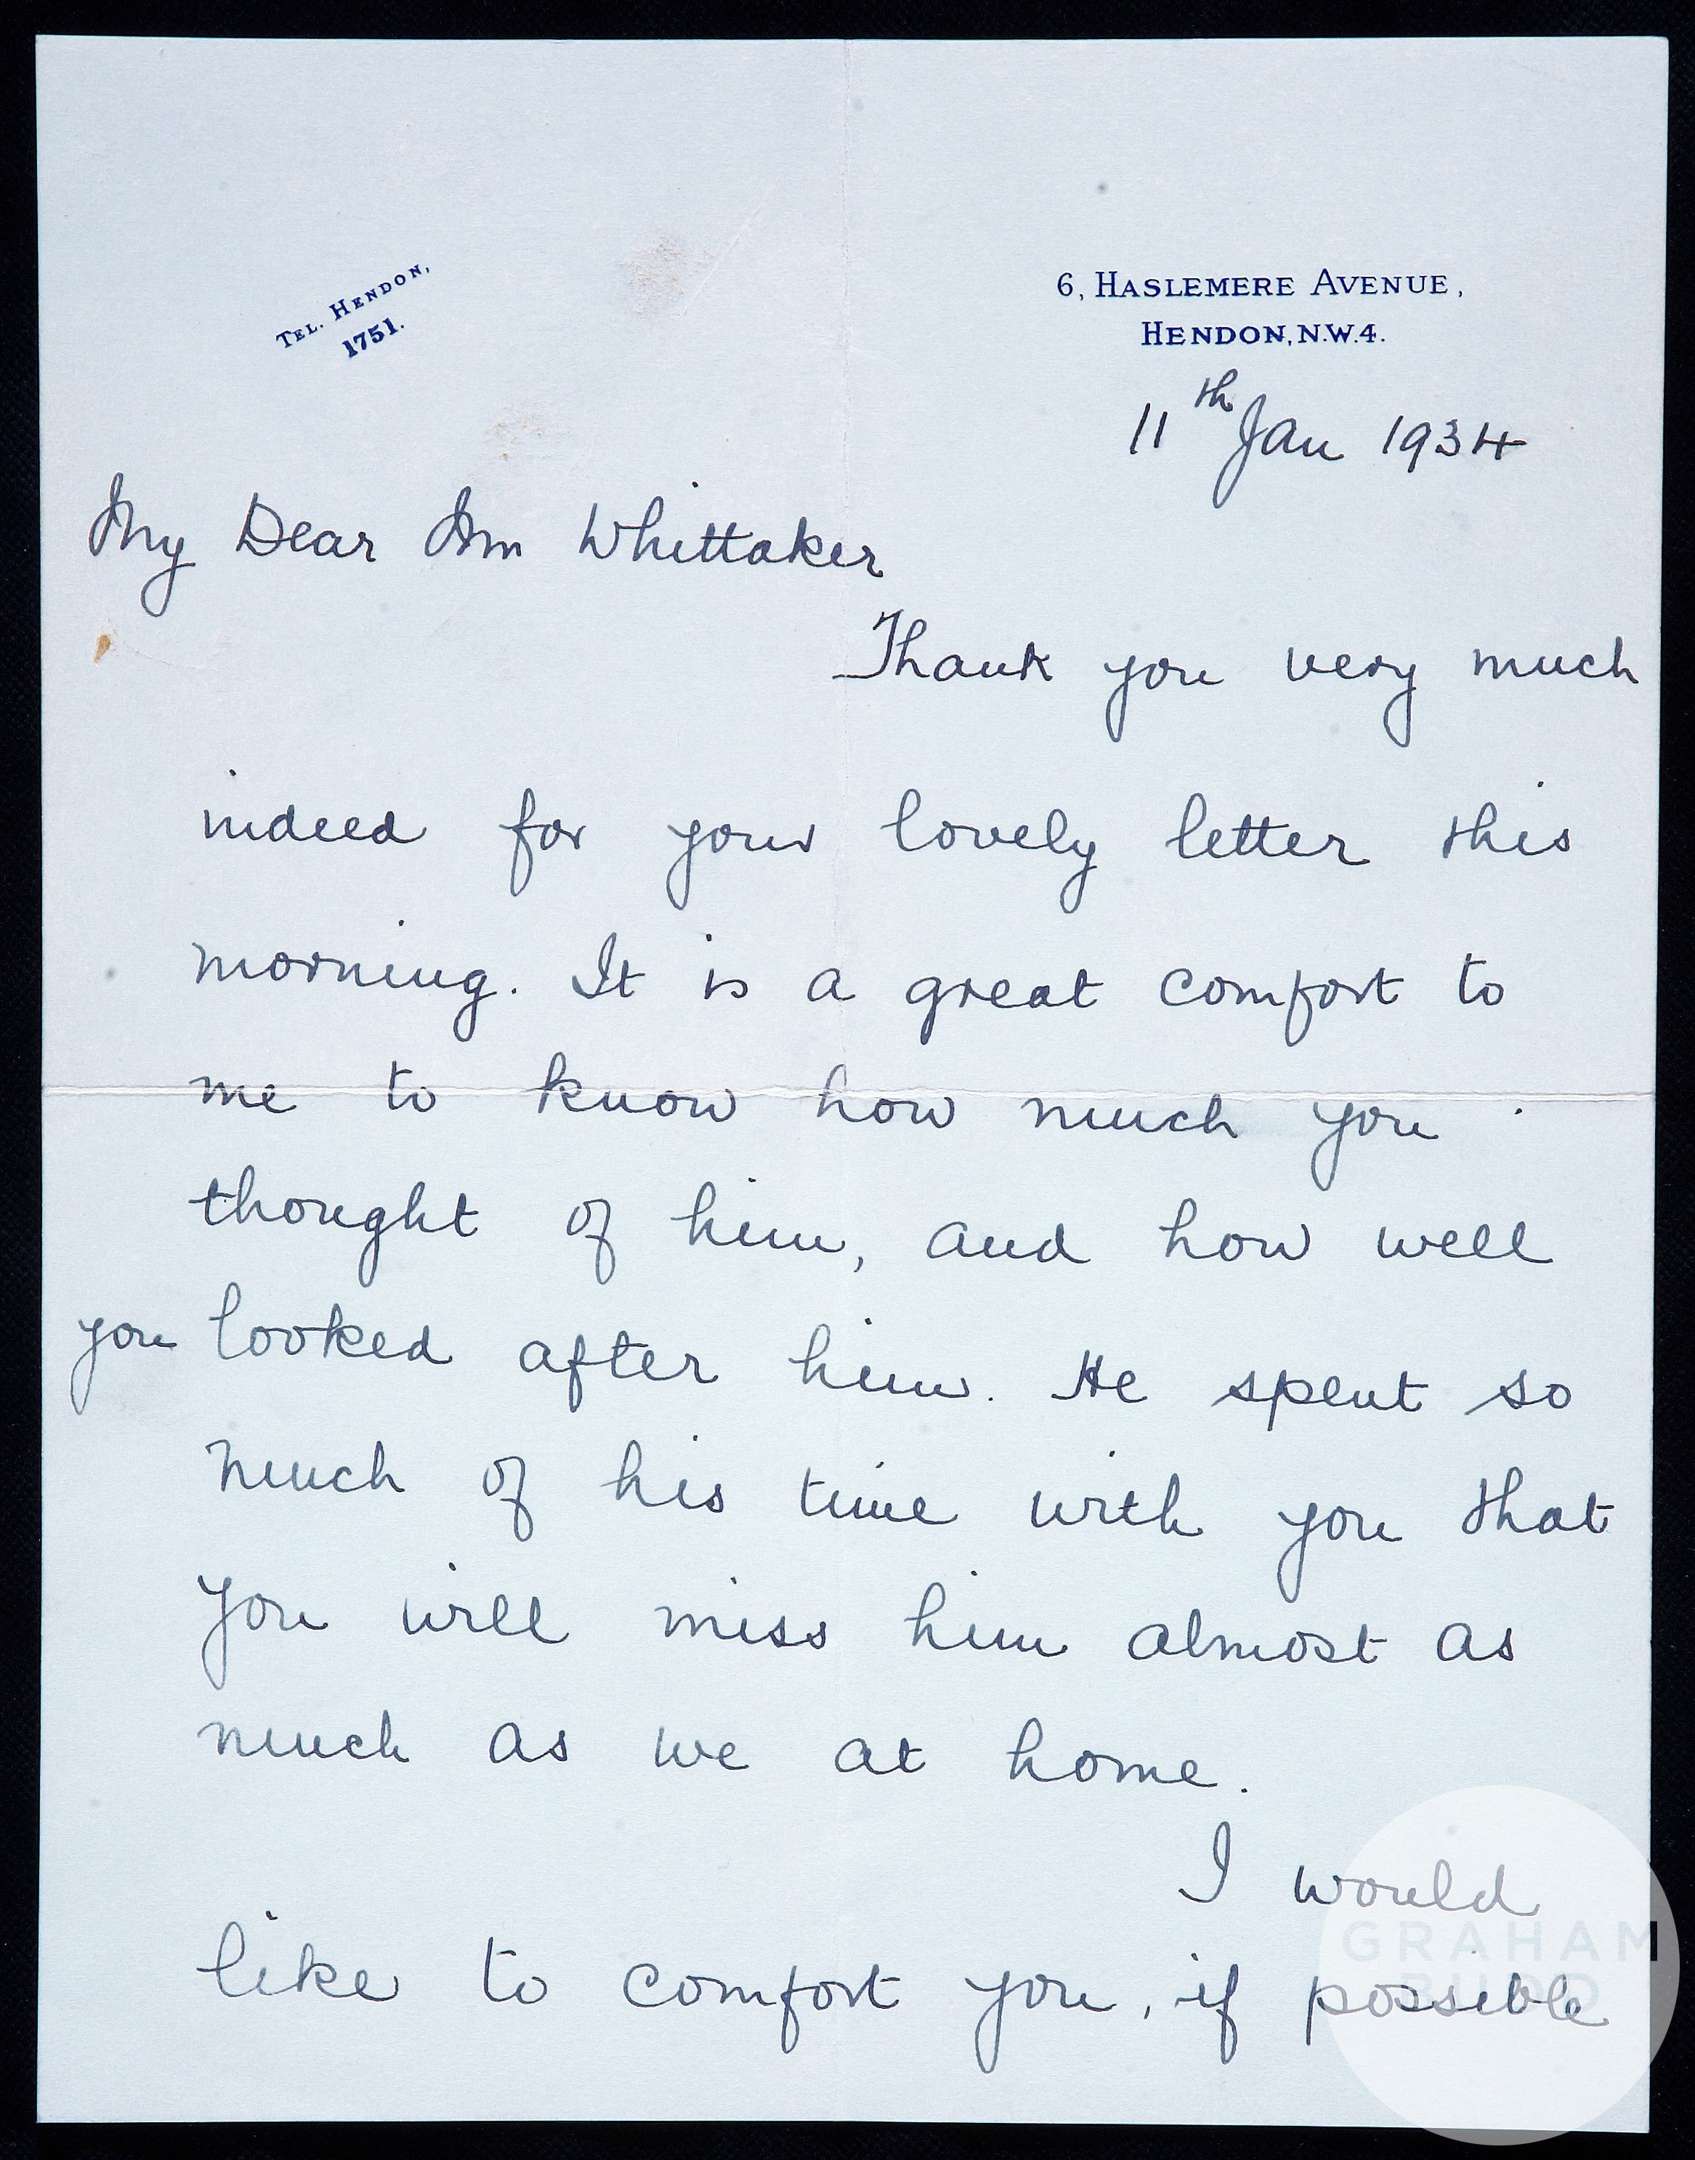 TEL. HENDON,
1751.
6, HASLEMERE AVENUE,
HENDON, N.W.4.
11th Jan 1934
My Dear Mr Whittaker
Thank you very much
indeed for your lovely letter this
morning. It is a great comfort to
me to know how much you
thought of him, and how well
you looked after him. He spent so
much of his time with you that
you will miss him almost as
much as we at home.
I would
like to comfort you, if possible
GRAHAM
BUDD